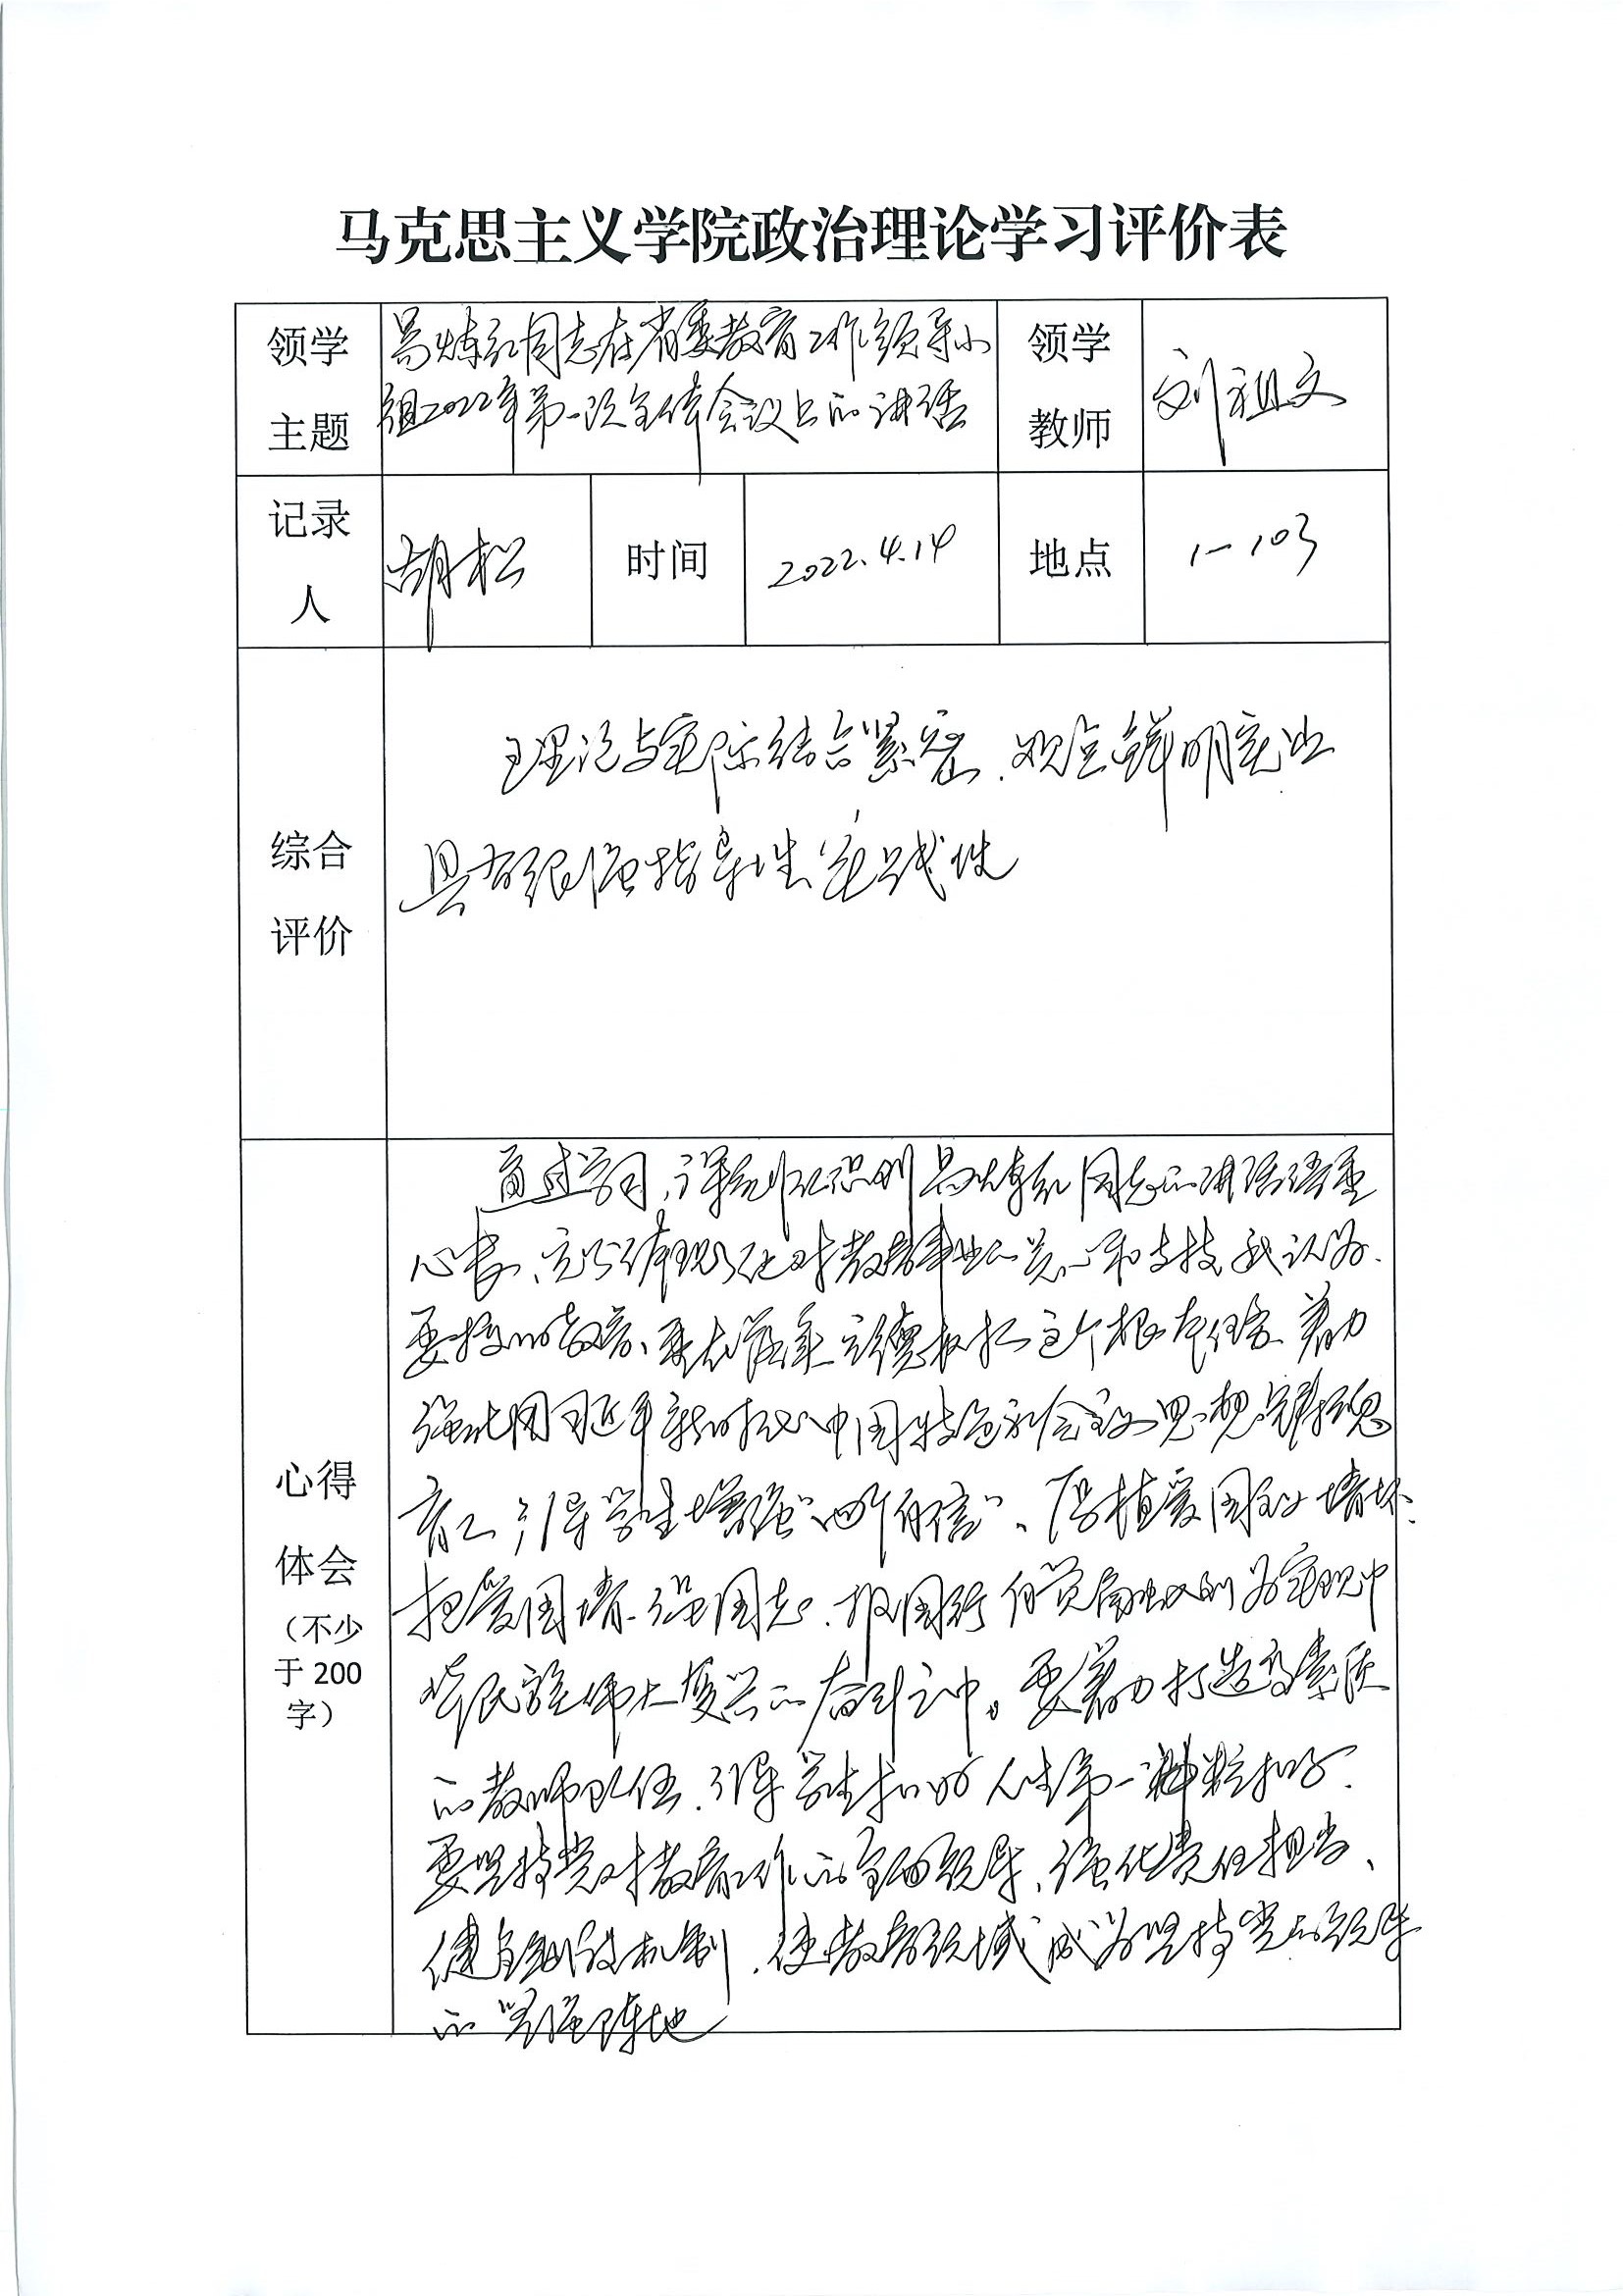 马克思主义学院政治理论学习评价表
领学
主题
易炼红同志在省委教育工作领导小
组2022年第一次全体会议上的讲话
领学
教师
刘祖文
记录
人
胡松
时间
2022.4.14
地点
1-103
综合
评价
理论与实际结合紧密、观点鲜明突出
具有很强指导性实践性
心得
体会
(不少
于 200
字)
通过学习,深刻认识到易炼红同志的讲话语重
心长、充分体现了他对教育事业的关心和支持,我认为、
要抓的教育、要在落实立德树人这个根本任务、着力
强化用习近平新时代中国特色社会主义思想铸魂
育人,引导学生增强“四个自信”、厚植爱国主义情怀、
把爱国情、强国志、报国行自觉融入到为实现中
华民族伟大复兴的奋斗之中。要着力打造高素质
的教师队伍、引导学生扣好人生第一粒扣子.
要坚持党对教育工作的全面领导、强化责任担当、
健全机制、使教育领域成为坚持党的领导
的坚强阵地